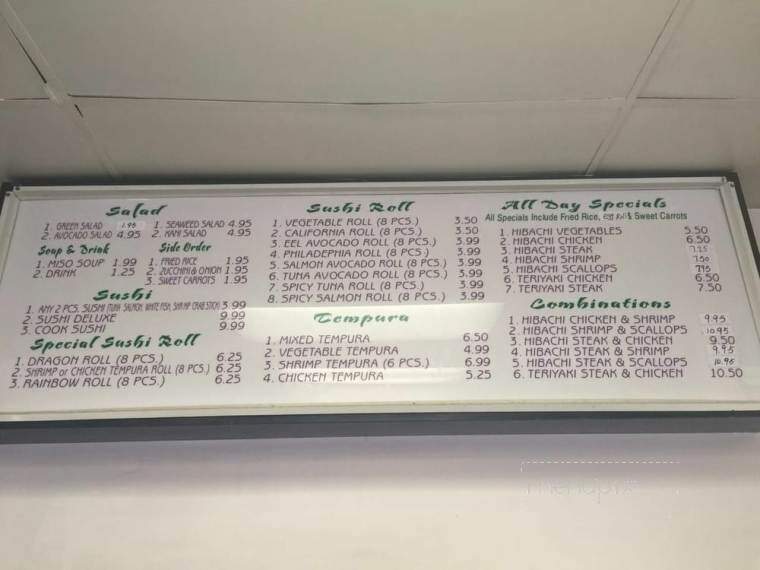 Salad
1. GREEN SALAD 1.95
2. AVOCADO SALAD 4.95
1. SEAWEED SALAD 4.95
2. KANI SALAD 4.95
Soup & Drink
1. MISO SOUP 1.99
2. DRINK 1.25
Side Order
1. FRIED RICE 1.95
2. ZUCCHINI & ONION 1.95
3. SWEET CARROTS 1.95
Sushi
1. ANY 2 PCS. SUSHI (TUNA, SALMON, WHITE FISH, SHRIMP CRAB STICK) 3.99
2. SUSHI DELUXE 9.99
3. COOK SUSHI 9.99
Special Sushi Roll
1. DRAGON ROLL (8 PCS.) 6.25
2. SHRIMP or CHICKEN TEMPURA ROLL (8 PCS.) 6.25
3. RAINBOW ROLL (8 PCS.) 6.25
Sushi Roll
1. VEGETABLE ROLL (8 PCS.) 3.50
2. CALIFORNIA ROLL (8 PCS.) 3.50
3. EEL AVOCADO ROLL (8 PCS.) 3.99
4. PHILADEPHIA ROLL (8 PCS.) 3.99
5. SALMON AVOCADO ROLL (8 PCS.) 3.99
6. TUNA AVOCADO ROLL (8 PCS.) 3.99
7. SPICY TUNA ROLL (8 PCS.) 3.99
8. SPICY SALMON ROLL (8 PCS.) 3.99
Tempura
1. MIXED TEMPURA 6.50
2. VEGETABLE TEMPURA 4.99
3. SHRIMP TEMPURA (6 PCS.) 6.99
4. CHICKEN TEMPURA 5.25
All Day Specials
All Specials Include Fried Rice, egg Roll & Sweet Carrots
1. HIBACHI VEGETABLES 5.50
2. HIBACHI CHICKEN 6.50
3. HIBACHI STEAK 7.25
4. HIBACHI SHRIMP 7.50
5. HIBACHI SCALLOPS 7.95
6. TERIYAKI CHICKEN 6.50
7. TERIYAKI STEAK 7.50
Combinations
1. HIBACHI CHICKEN & SHRIMP 9.95
2. HIBACHI SHRIMP & SCALLOPS 10.95
3. HIBACHI STEAK & CHICKEN 9.50
4. HIBACHI STEAK & SHRIMP 9.95
5. HIBACHI STEAK & SCALLOPS 10.95
6. TERIYAKI STEAK & CHICKEN 10.50